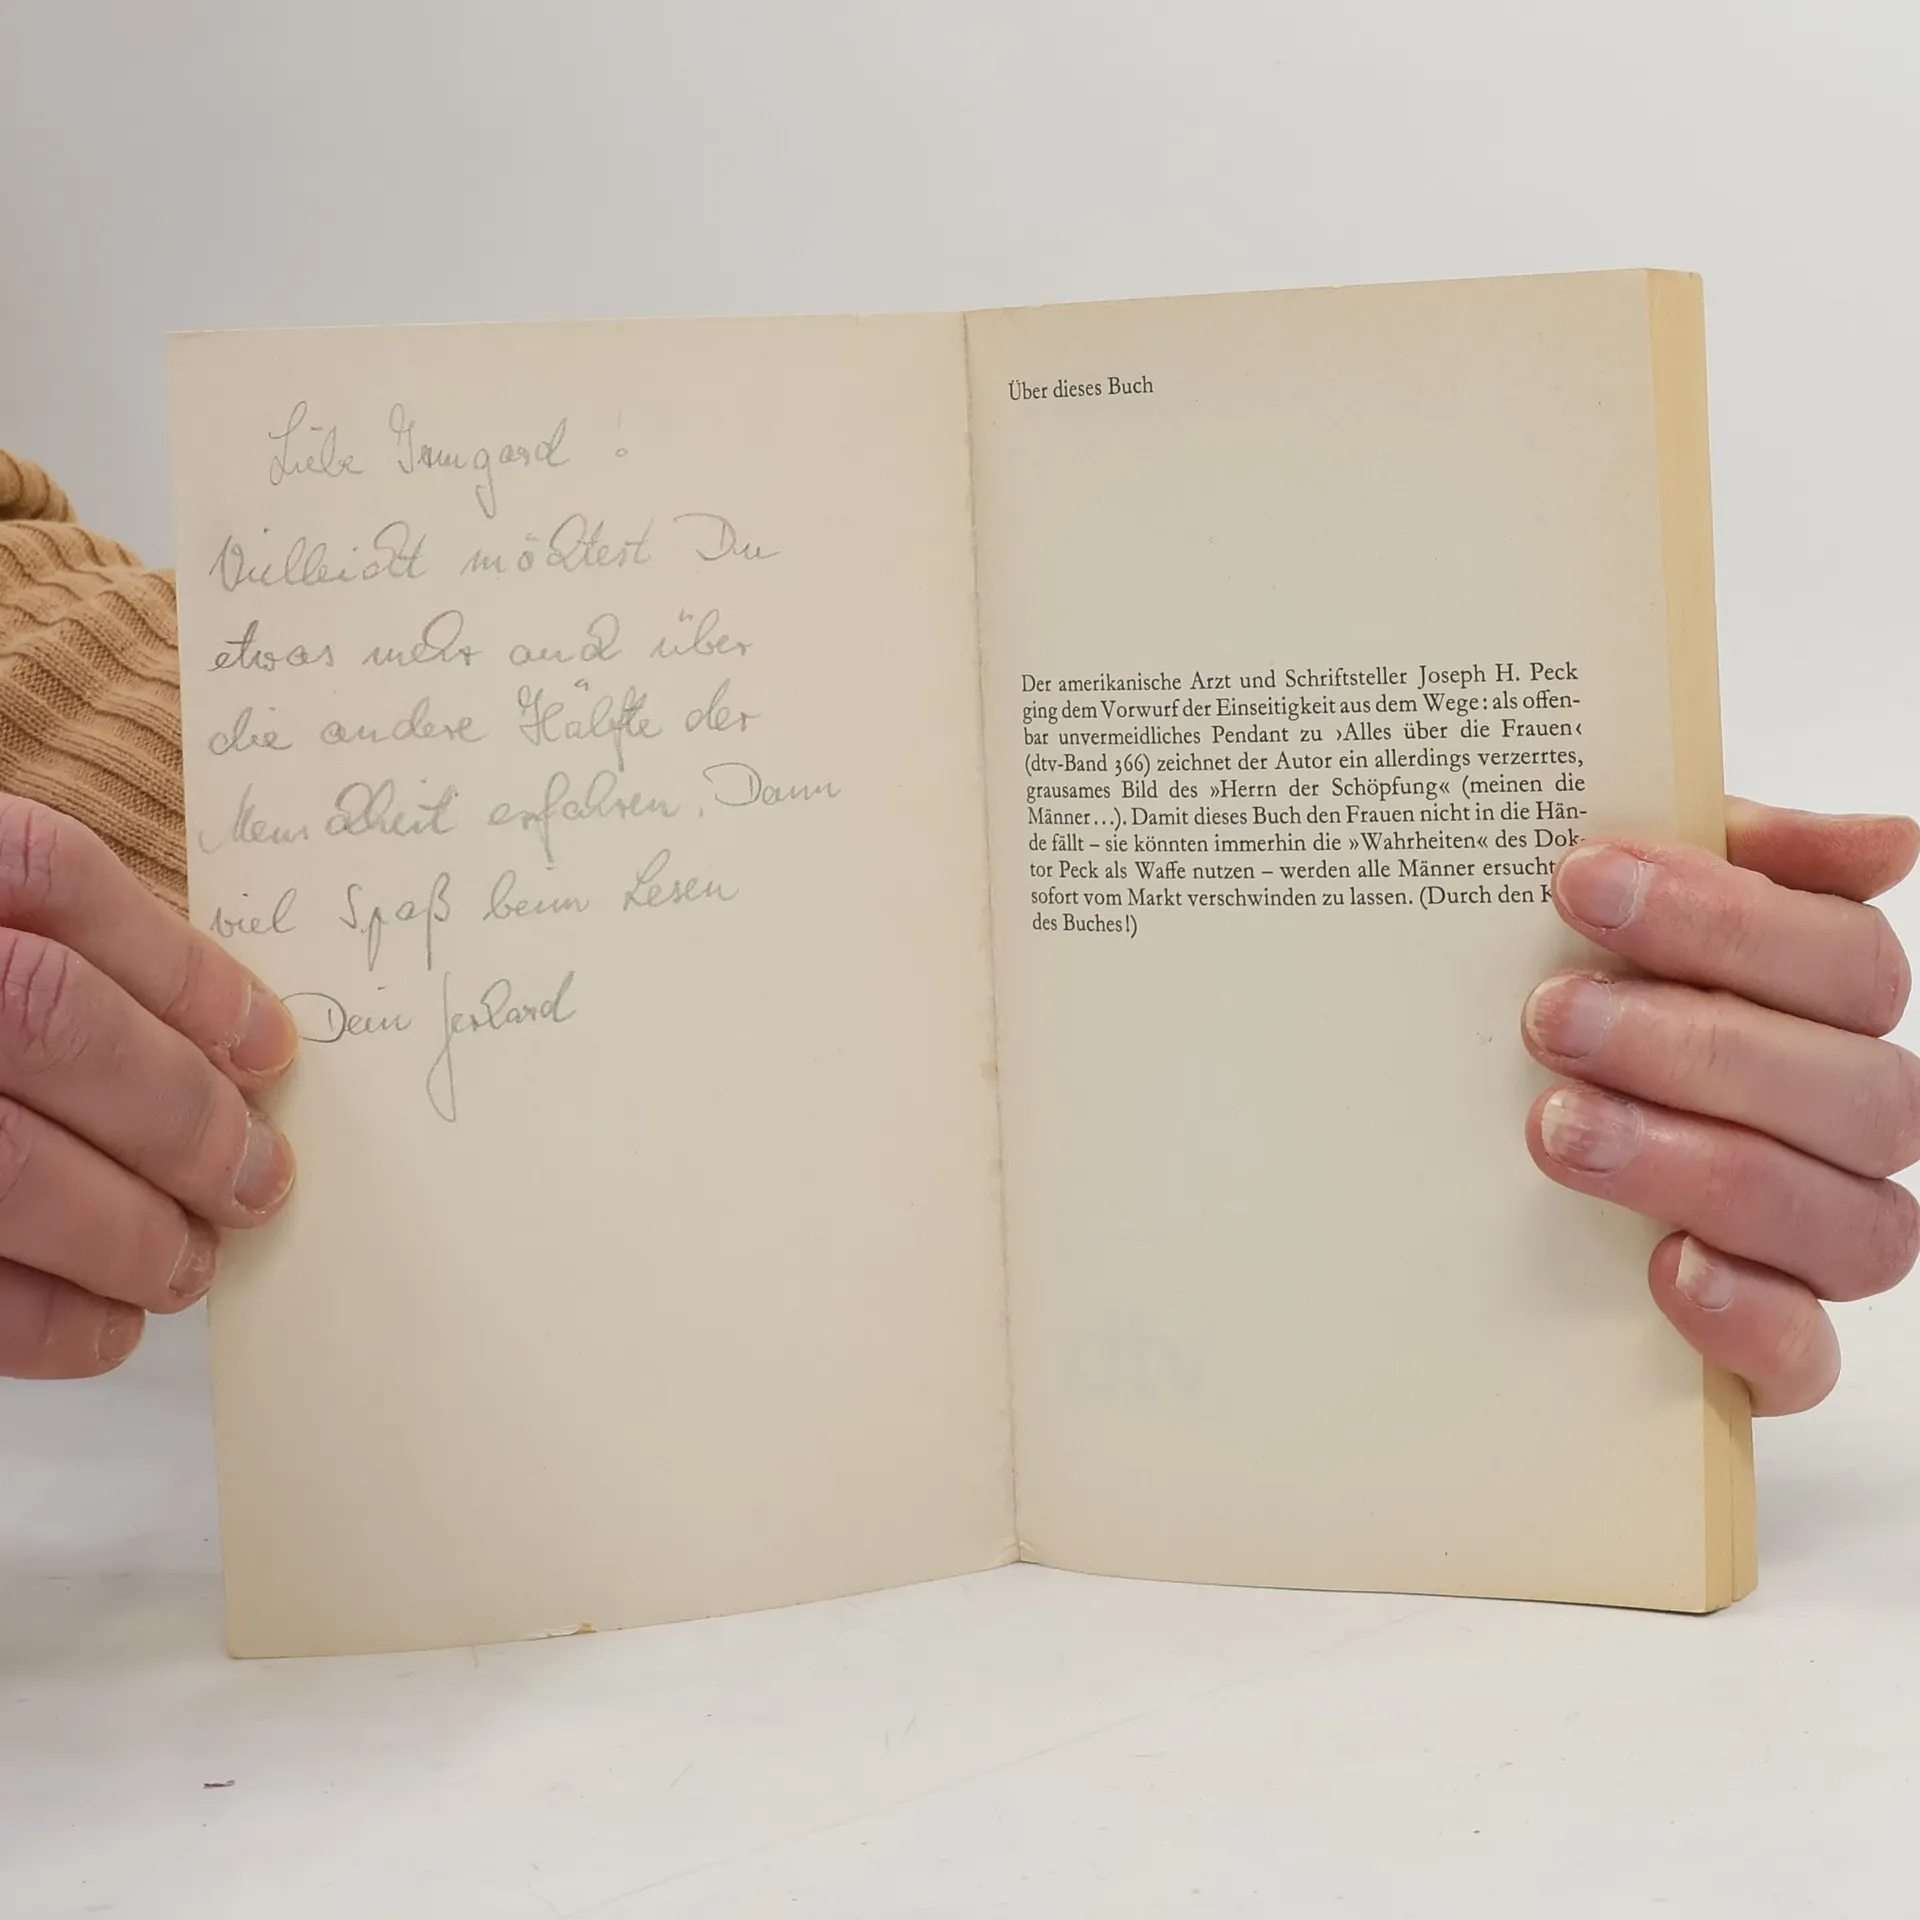 Liebe Irmgard !
Vielleicht möchtest Du
etwas mehr auch über
die andere Hälfte der
Menschheit erfahren. Dann
viel Spaß beim Lesen
Dein Gerhard
Über dieses Buch
Der amerikanische Arzt und Schriftsteller Joseph H. Peck
ging dem Vorwurf der Einseitigkeit aus dem Wege: als offen-
bar unvermeidliches Pendant zu ›Alles über die Frauen‹
(dtv-Band 366) zeichnet der Autor ein allerdings verzerrtes,
grausames Bild des »Herrn der Schöpfung« (meinen die
Männer...). Damit dieses Buch den Frauen nicht in die Hän-
de fällt – sie könnten immerhin die »Wahrheiten« des Dok-
tor Peck als Waffe nutzen – werden alle Männer ersucht
sofort vom Markt verschwinden zu lassen. (Durch den K
des Buches!)